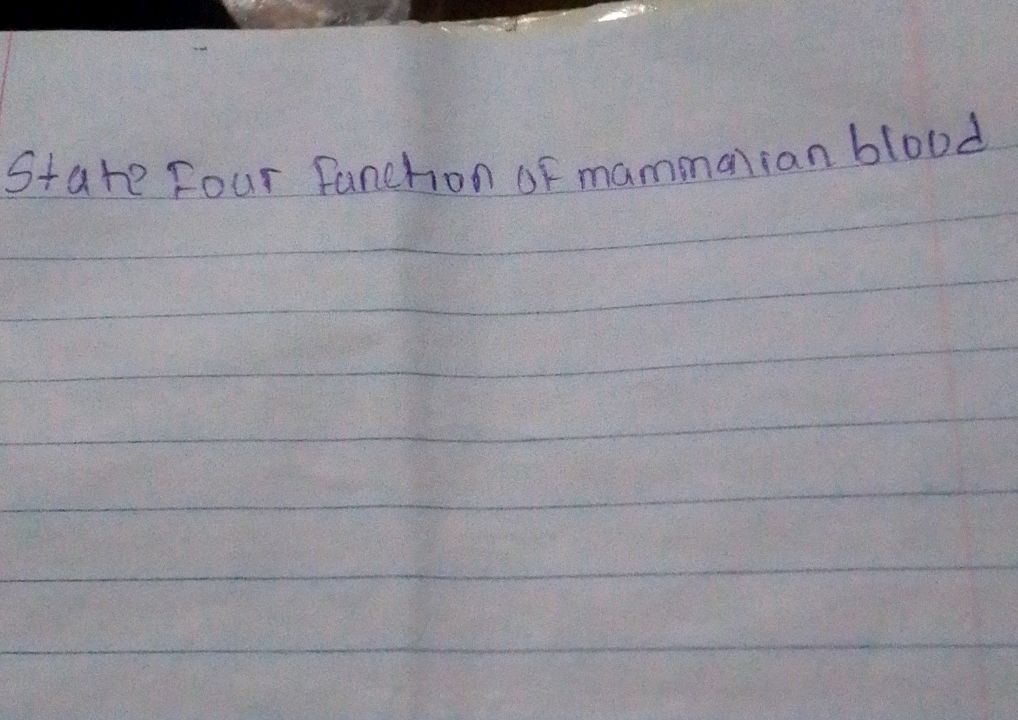 State Four function of mammalian blood